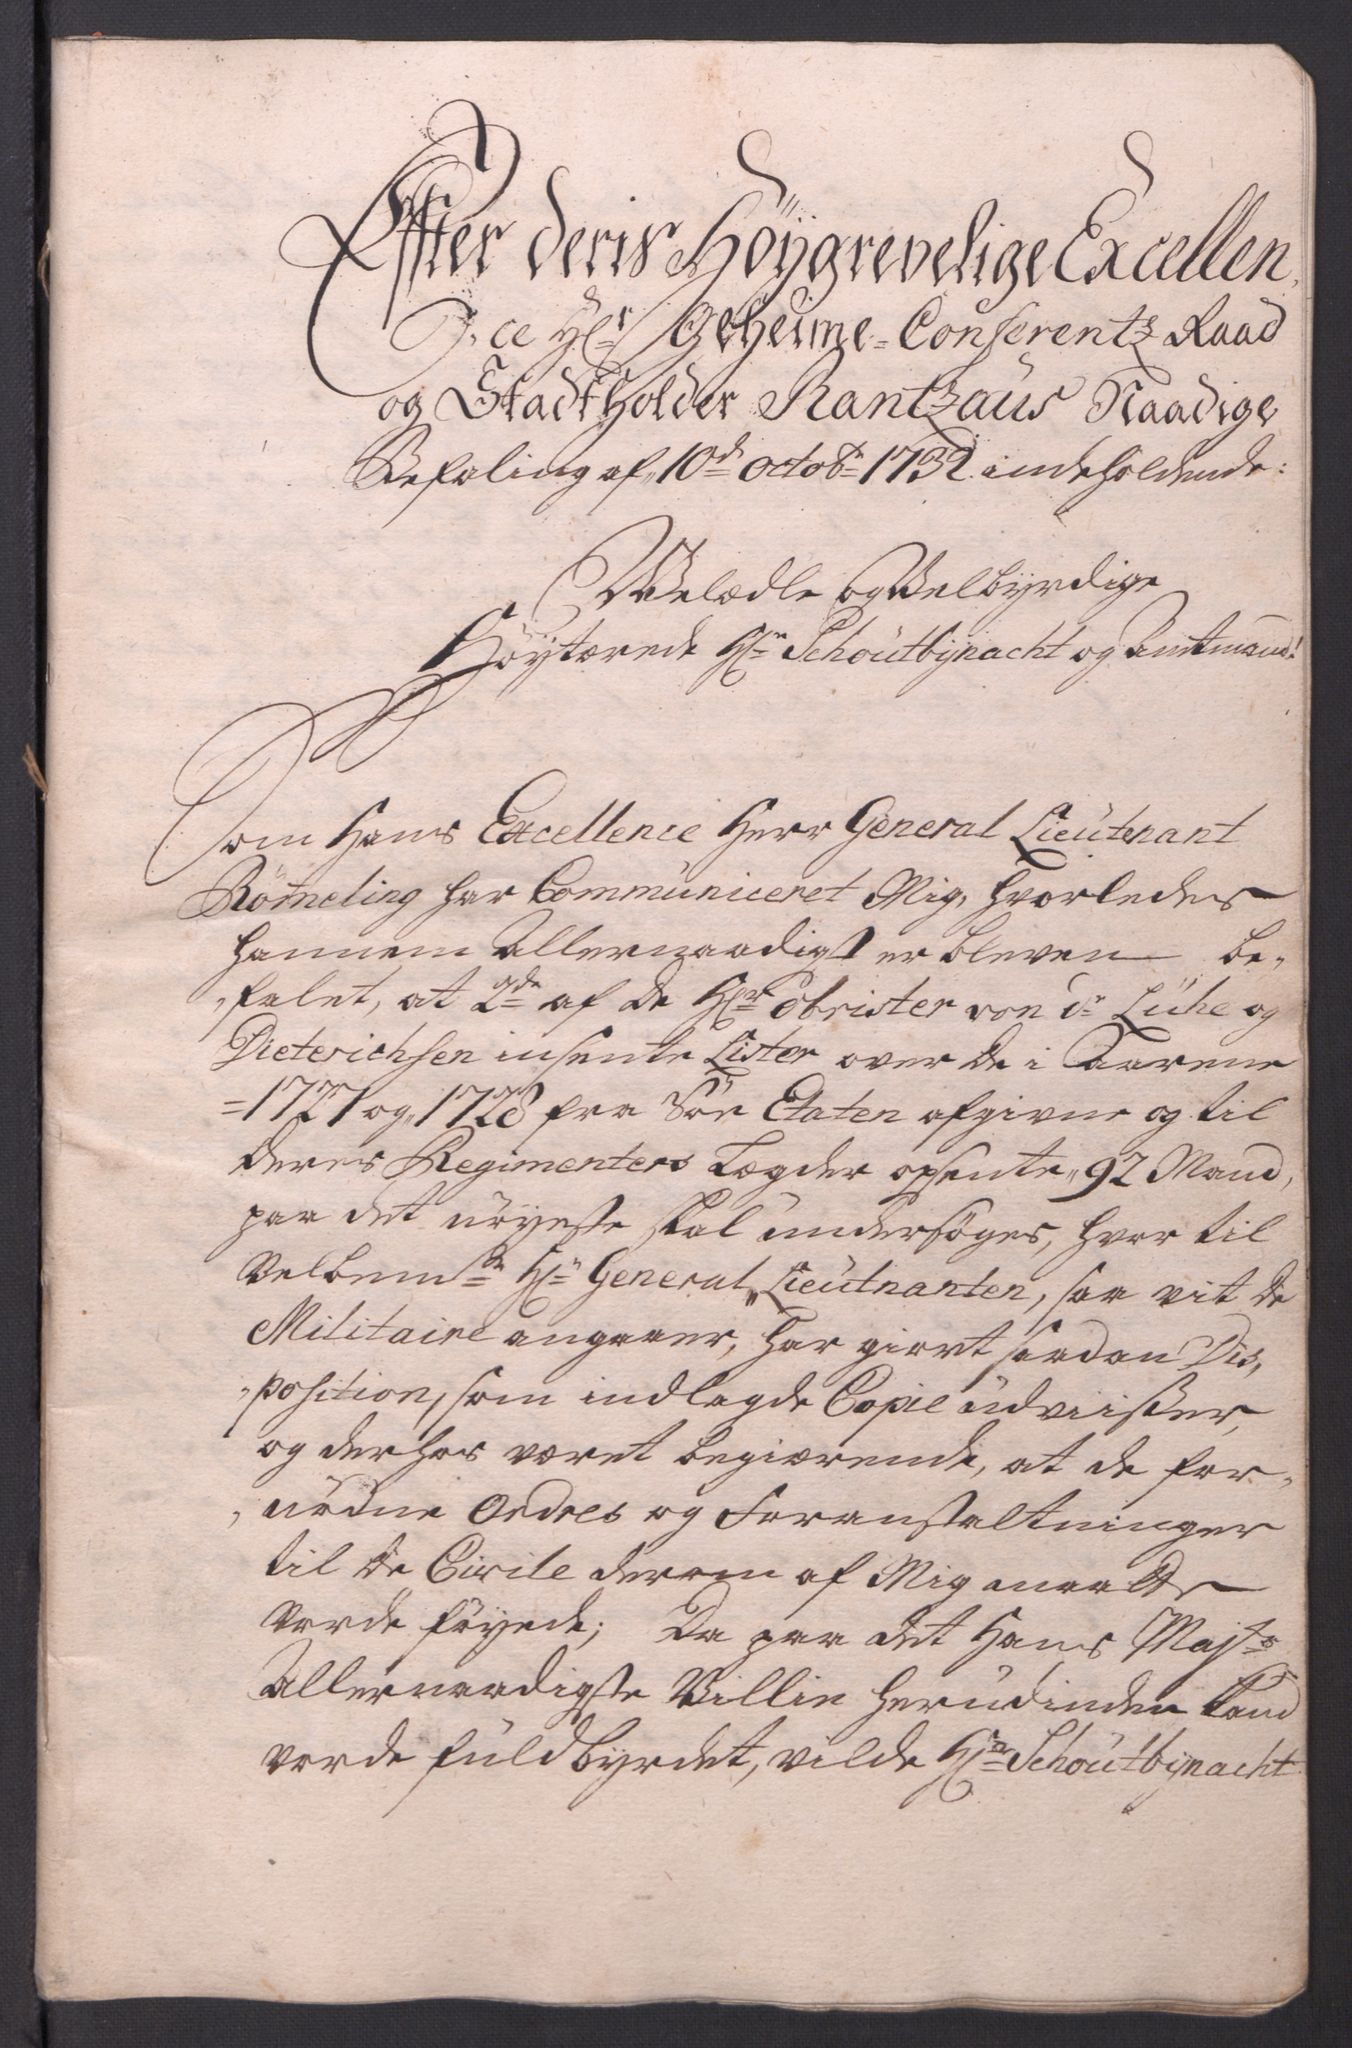 Effter deris Höygrevelige Excellen,
ce Hr Geheime-Conferentz Raad
og Stadtholder Rantzaus Naadige
Befaling af 10de octobr 1732 indeholdende:
Welædle og Velbyrdige
Höytærede Hr Schoutbÿnacht og Amtmand!
Som Hans Excellence Herr General Lieutenant
Römeling har Communiceret Mig, hvorledes
hannem Allernaadigst er bleven be-
-falet, at 2de af de Hrr Obrister von dr Lühe og
Dieterichsen insente Lister over de i Aarene
=1727 og 1728 fra Söe Etaten afgivne og til
deres Regimenters Lægder opsente 92 Mand,
paa det nöyeste skal undersöges, hvor til
Velbemte Hr General Lieutnanten, saa vit de
Militaire angaaer, har giort saadan Dis,
-position, som indlagde Copie udviißer,
og derhos været begiærende, at de for-
-nödne Ordres og Foranstaltninger
til de Civile derom af Mig maatte
vorde föyede; Da paa det Hans Majts
Allernaadigste Villie herudinden kand
vorde fuldbyrdet, vilde Hr Schoutbÿnacht